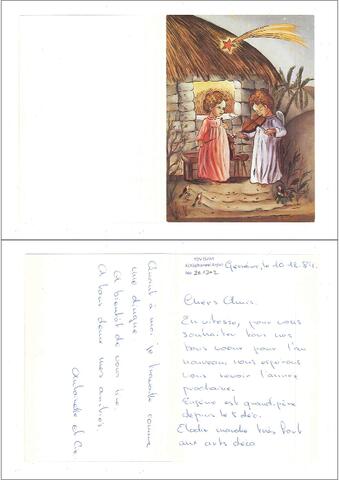 Genève, le 10.12.84.
Chers Amis.
En vitesse, pour vous
souhaiter tous nos
bons voeux pour l'an
nouveau, nous espérons
vous revoir l'année
prochaine.
Eugène est grand-père
depuis le 5 déc.
Elodie marche très fort
aux arts déco
Quant à moi, je travaille comme
une dingue
A bientôt de vous lire.
A tous deux mes amitiés
Antoinette et Cie